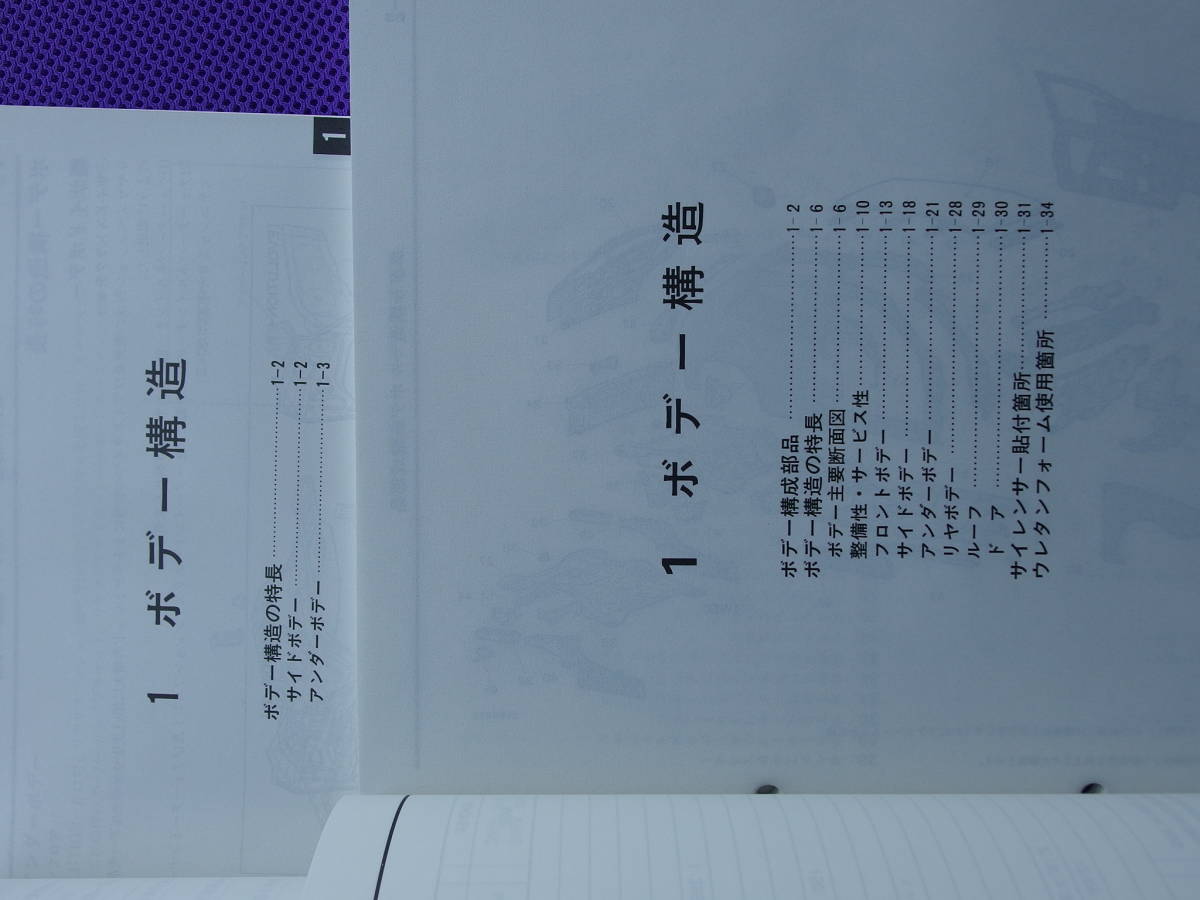 1
1 ボデー構造
ボデー構造の特長……………………1-2
サイドボデー……………………1-2
アンダーボデー……………………1-3
1 ボデー構造
ボデー構成部品……………………1- 2
ボデー構造の特長……………………1- 6
ボデー主要断面図……………………1- 6
整備性・サービス性……………………1-10
フロントボデー……………………1-13
サイドボデー……………………1-18
アンダーボデー……………………1-21
リヤボデー……………………1-28
ルーフ……………………1-29
ド ア……………………1-30
サイレンサー貼付箇所……………………1-31
ウレタンフォーム使用箇所……………………1-34